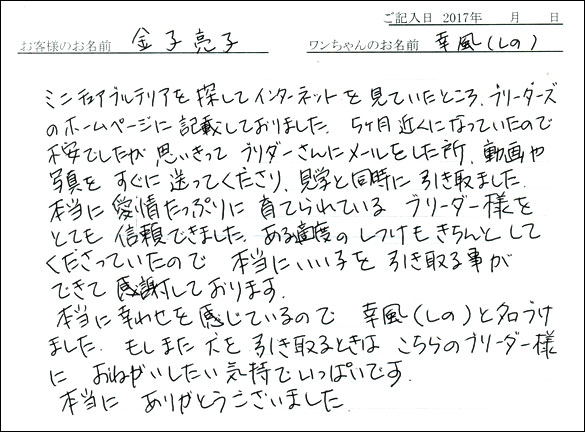 ご記入日 2017年 月 日
お客様のお名前 金子亮子 ワンちゃんのお名前 幸風(しの)
ミニチュアブルテリアを探してインターネットを見ていたところ、ブリーダーズ
のホームページに記載しておりました。5ヶ月近くになっていたので
不安でしたが思いきってブリダーさんにメールをした所、動画や
写真をすぐに送ってくださり、見学と同時に引き取ました。
本当に愛情たっぷりに育てられているブリーダー様を
とても信頼できました。ある適度のしつけもきちんとして
くださっていたので本当にいい子を引き取る事が
できて感謝しております。
本当に幸わせを感じているので幸風(しの)と名ろうけ
ました。もしまた犬を引き取るときはこちらのブリーダー様
におねがいしたい気持でいっぱいです。
本当にありがとうございました